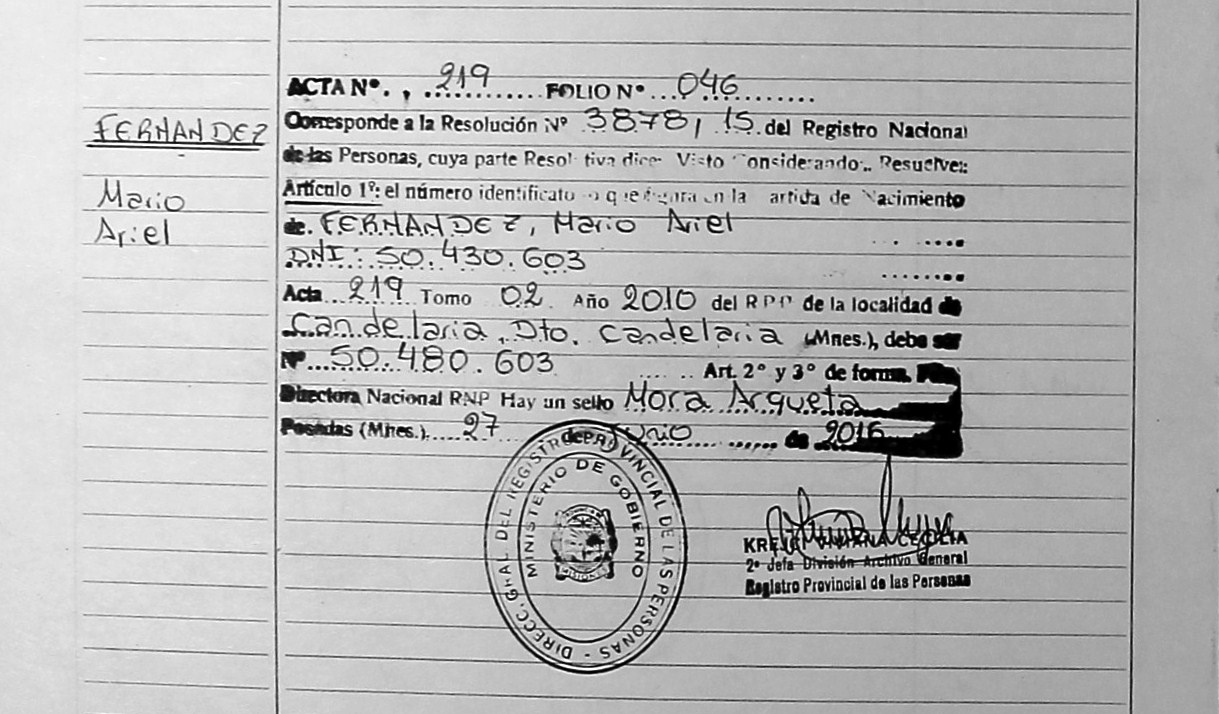 ACTA Nº. , 219 FOLIO Nº 046
FERNANDEZ
Mario
Ariel
Corresponde a la Resolución Nº 3878/15 del Registro Nacional
de las Personas, cuya parte Resolutiva dice: Visto Considerando: Resuelve:
Artículo 1º: el número identificatorio que figura en la Partida de Nacimiento
de. FERNANDEZ, Mario Ariel
DNI: 50.430.603
Acta 219 Tomo 02 Año 2010 del RPP de la localidad de
Candelaria, Dto. Candelaria (Mnes.), debe ser
Nº 50.480.603 Art. 2º y 3º de forma.
Directora Nacional RNP Hay un sello Mora Argueta
Posadas (Mnes.), 27 de 2016
DIRECC. GRAL DEL REGISTRO PROVINCIAL DE LAS PERSONAS -
MINISTERIO DE GOBIERNO
MISIONES
CECILIA
2ª Jefa División Archivo General
Registro Provincial de las Personas